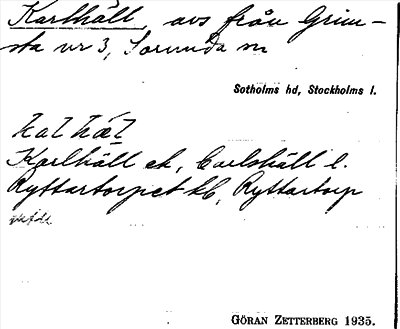 Karlhäll, avs från Grim-
sta nr 3, Sorunda sn
Sotholms hd, Stockholms l.
Karlhäll ek, Carlshäll l.
Ryttartorpet kb, Ryttartorp
GÖRAN ZETTERBERG 1935.